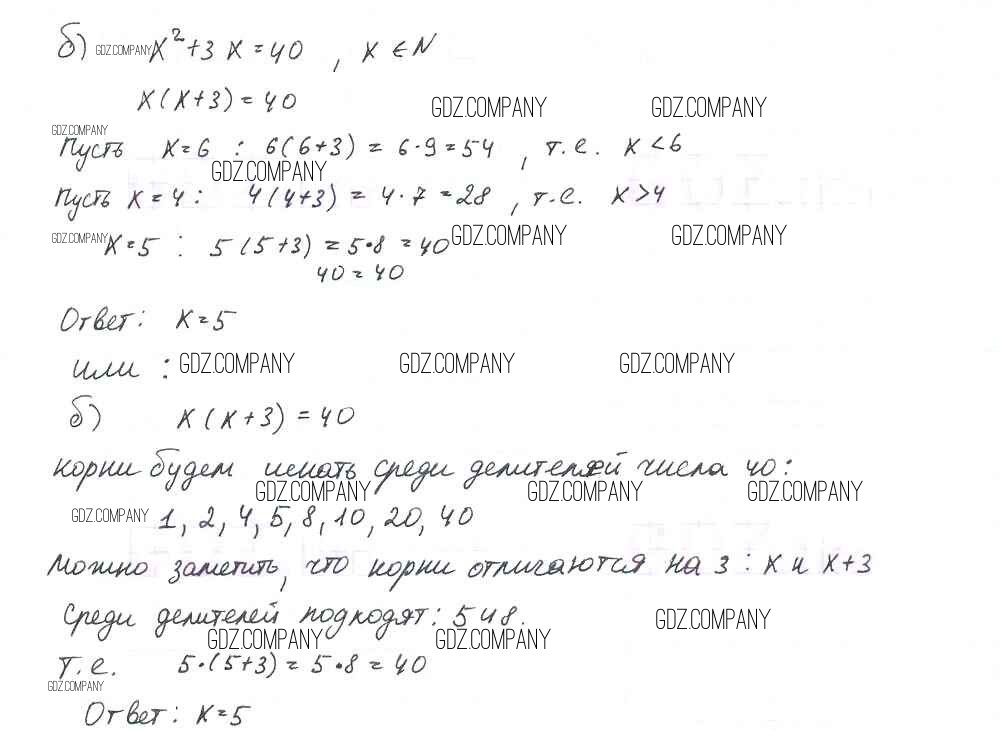 б) GDZ.COMPANY x² + 3x = 40 , x ∈ N
x(x+3) = 40
GDZ.COMPANY GDZ.COMPANY
GDZ.COMPANY
Пусть x=6 : 6(6+3) = 6·9 = 54 , т.е. x < 6
GDZ.COMPANY
Пусть x = 4 : 4(4+3) = 4·7 = 28 , т.е. x > 4
GDZ.COMPANY x=5 : 5(5+3) = 5·8 = 40 GDZ.COMPANY GDZ.COMPANY
40 = 40
Ответ: x=5
или : GDZ.COMPANY GDZ.COMPANY GDZ.COMPANY
б) x(x+3) = 40
корни будем искать среди делителей числа 40:
GDZ.COMPANY GDZ.COMPANY GDZ.COMPANY
GDZ.COMPANY 1, 2, 4, 5, 8, 10, 20, 40
Можно заметить, что корни отличаются на 3 : x и x+3
Среди делителей подходят: 5 и 8.
GDZ.COMPANY
GDZ.COMPANY GDZ.COMPANY
т.е. 5·(5+3) = 5·8 = 40
GDZ.COMPANY
Ответ: x=5